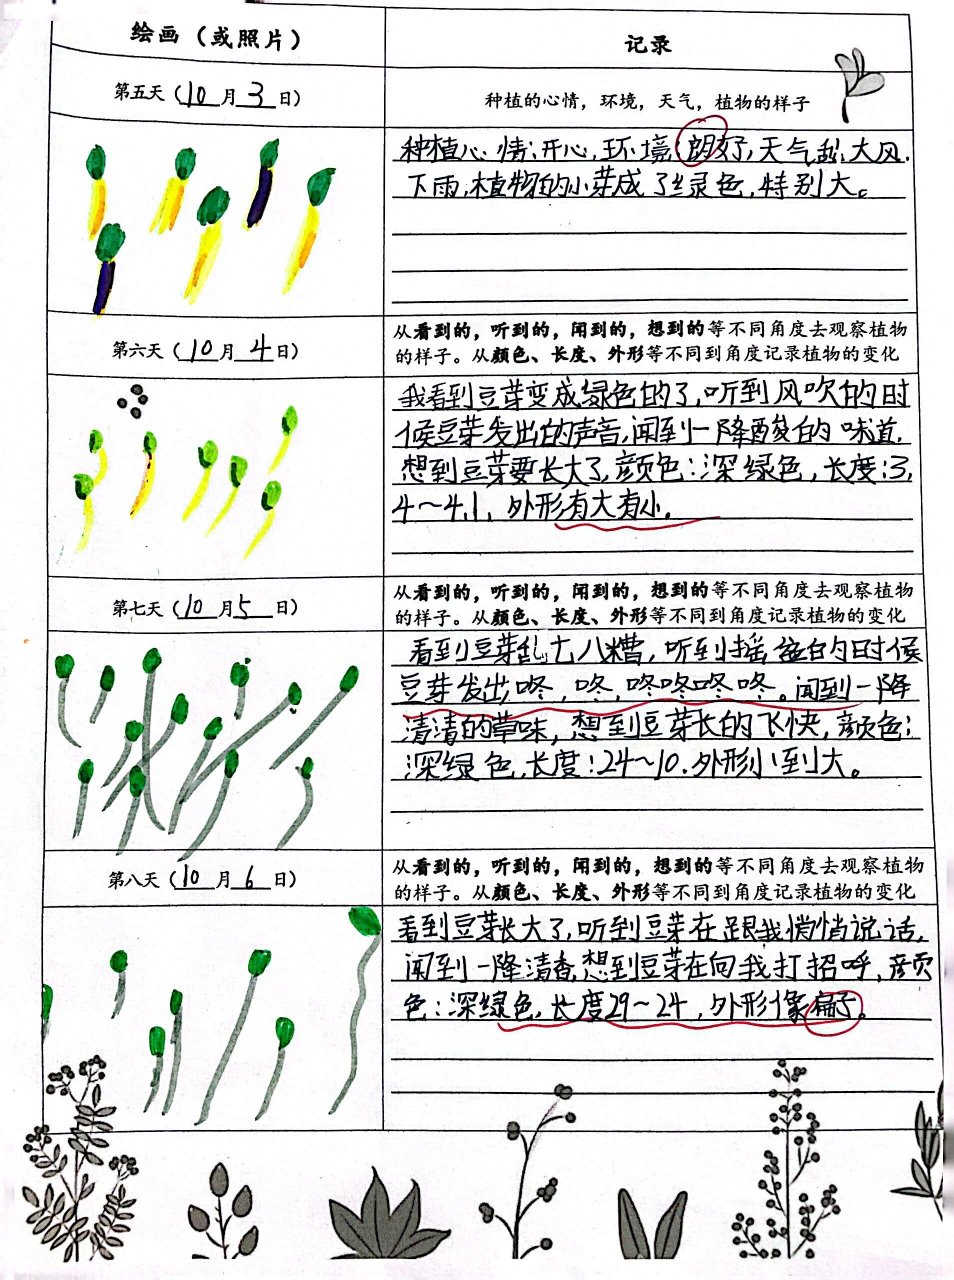 绘画（或照片）
记录
第五天（10月3日）
种植的心情，环境，天气，植物的样子
种植心情:开心,环境:朗好,天气刮大风.
下雨,植物的小芽成了绿色,特别大。
第六天（10月4日）
从看到的，听到的，闻到的，想到的等不同角度去观察植物
的样子。从颜色、长度、外形等不同到角度记录植物的变化
我看到豆芽变成绿色的了,听到风吹的时
候豆芽发出的声音,闻到一降酸的味道.
想到豆芽要长大了,颜色:深绿色,长度:3,
4～4.1, 外形有大有小.
第七天（10月5日）
从看到的，听到的，闻到的，想到的等不同角度去观察植物
的样子。从颜色、长度、外形等不同到角度记录植物的变化
看到豆芽乱七八糟,听到摇的时候
豆芽发出咚,咚,咚咚咚咚。闻到一降
清清的草味,想到豆芽长的飞快,颜色:
深绿色,长度:24～10.外形小到大。
第八天（10月6日）
从看到的，听到的，闻到的，想到的等不同角度去观察植物
的样子。从颜色、长度、外形等不同到角度记录植物的变化
看到豆芽长大了,听到豆芽在跟我悄悄说话,
闻到一降清香,想到豆芽在向我打招呼,颜
色:深绿色,长度29～24,外形像扁子。